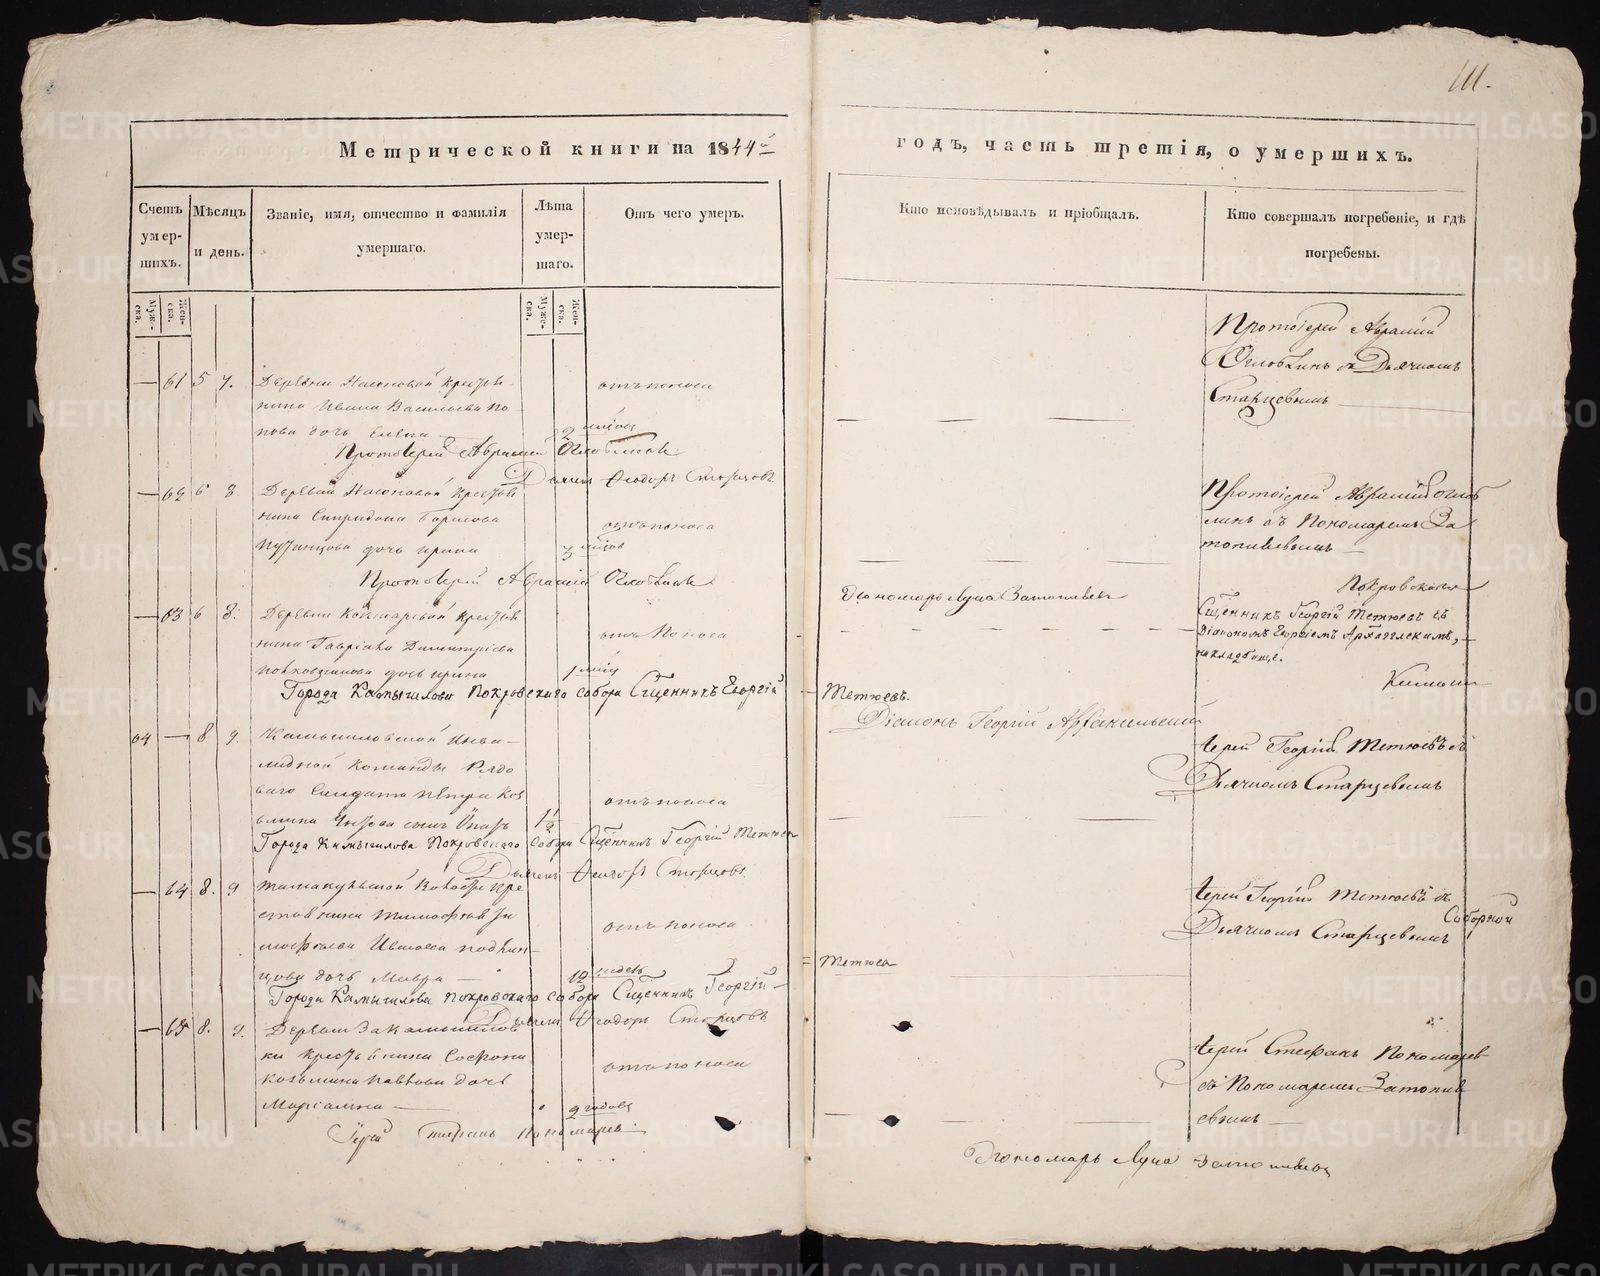 111.
Метрической книги на 1844й
годъ, часть третія, о умершихъ.
Счетъ умершихъ.
Мѣсяцъ и день.
Званіе, имя, отчество и фамилія умершаго.
Лѣта умершаго.
Отъ чего умеръ.
Кто исповѣдывалъ и пріобщалъ.
Кто совершалъ погребеніе, и гдѣ погребены.
Мужеска.
Женска.
Мужеска.
Женска.
61 5 7. Деревни Насоновой крестья-
нина Ивана Васильева По-
пова дочь Елена
2 мѣсяц
отъ поноса
Протоіерей Аврамій
Оглоблинъ съ Дьячкомъ
Старцевымъ
Протоіерей Аврамій Оглоблинъ
Дьячекъ Ѳеодоръ Старцовъ
62 6 8. Деревни Насоновой крестья
нина Спиридона Борисова
дочь Ирина
3 мѣсяц
отъ поноса
Протоіерей Аврамій Оглоб
линъ съ Пономаремъ За
топляевымъ
Протоіерей Аврамій Оглоблинъ
Пономарь Лука Затопляевъ
63 6 8. Деревни крестьян
нина Гавріила Димитріева
дочь Ирина
1 мѣсяц
отъ поноса
Покровскаго
Сщенникъ Георгій Метюевъ съ
Діакономъ Георгіемъ Архангельскимъ,
на кладбище.
Города Камышлова Покровскаго собора Сщенникъ Георгій
Метюевъ.
Діаконъ Георгій Архангельскій
64 8 9. Камышловской Инва-
лидной команды Рядо
ваго Солдата Петра Коз
ьмина сынъ
1 1/2
отъ поноса
Іерей Георгій Метюевъ съ
Дьячкомъ Старцевымъ
Города Камышлова Покровскаго собора Сщенникъ Георгій Метюев
Дьячекъ Ѳеодоръ Старцовъ
64 8. 9 Тамакульской Волости кре
стьянина Тимофѣя
Иванова
дочь Мавра
12 недел
отъ поноса
Іерей Георгій Метюевъ съ
Соборной
Дьячкомъ Старцевымъ
Города Камышлова Покровскаго собора Сщенникъ Георгій
Метюев
Дьячекъ Ѳеодоръ Старцовъ
65 8. 9. Деревни Закамышлов
ки крестьянина Софона
Козьмина Павлова дочь
Маріамна
2 годовъ
отъ поноса
Іерей Стефанъ Пономарев
съ Пономаремъ Затопля
евымъ
Іерей Стефанъ Пономаревъ
Пономарь Лука Затопляевъ
METRIKI.GASO-URAL.RU